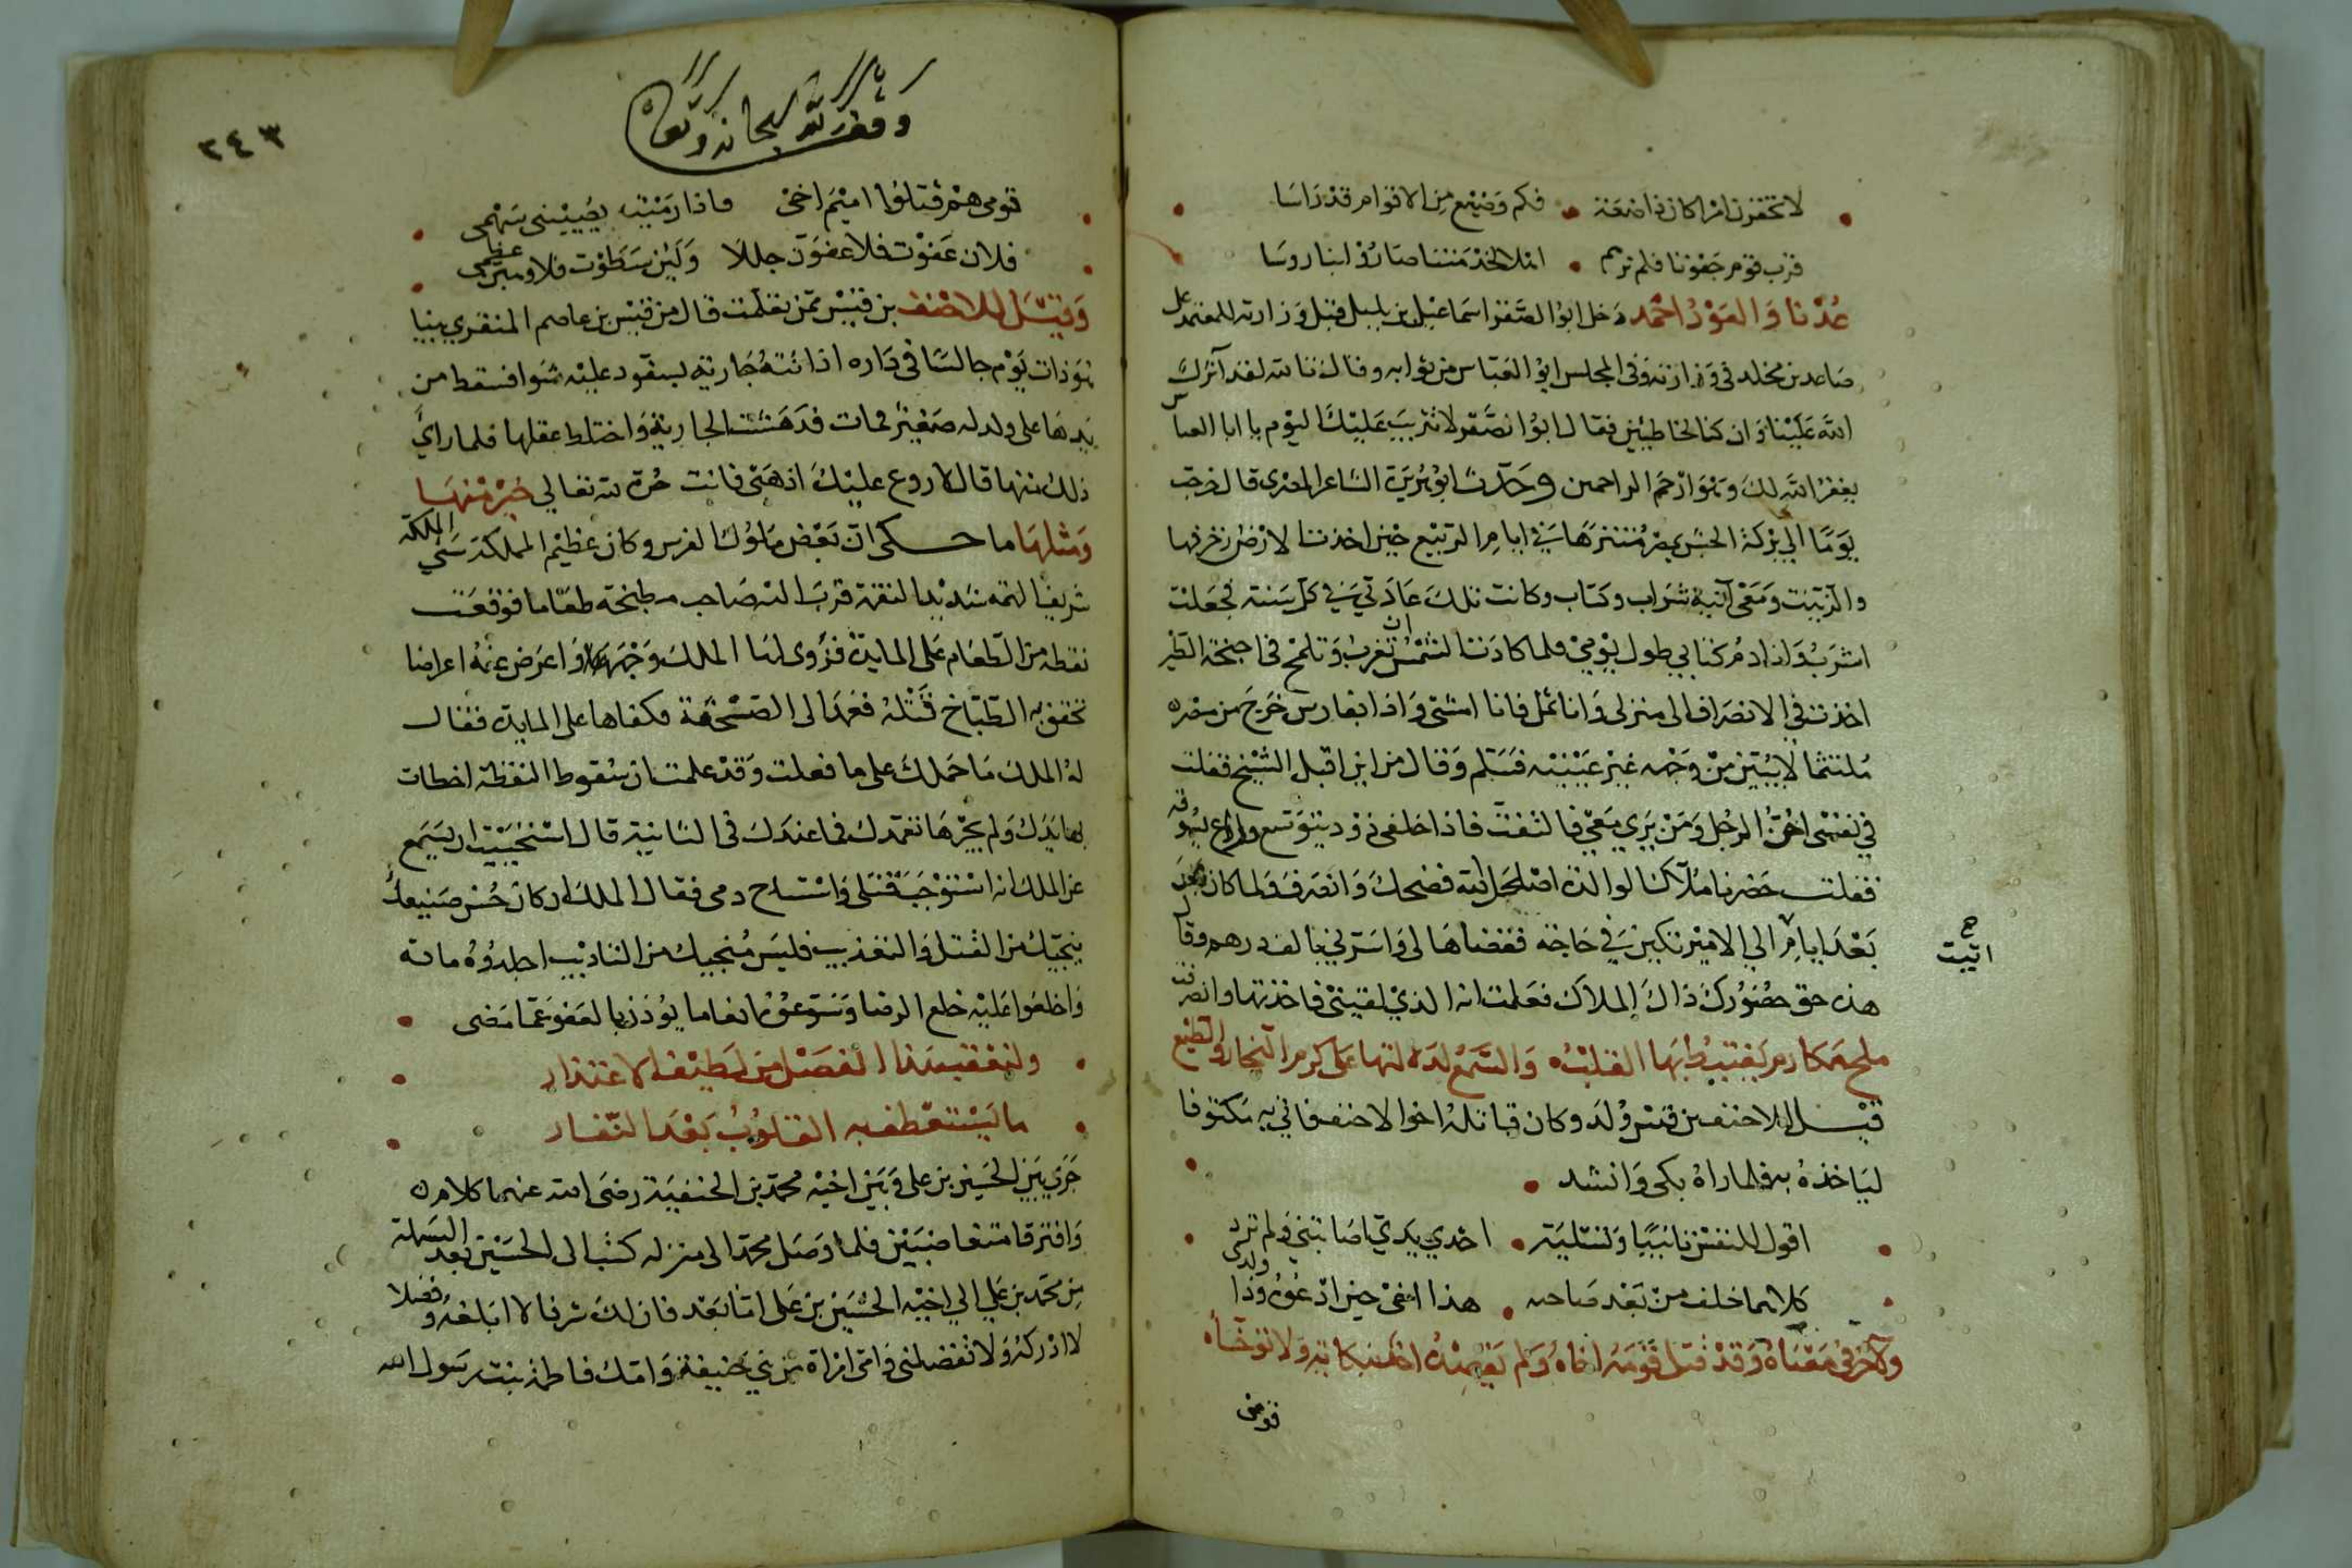 لا تحقرن امرا كان ذا ضعة فكم وضيع من الاقوام قد راسا
فرب قوم جفونا فلم نرهم اهلا لخدمتنا صاروا لنا روسا
عدنا والعود احمد دخل ابو الصقر اسماعيل بن بلبل قبل وزارته للمعتمد على
صاعد بن مخلد في وزارته وفي المجلس ابو العباس بن ثوابه وقال تالله لقد آثرك
الله علينا وان كنا لخاطيين فقال ابو الصقر لا تثريب عليك اليوم يا ابا العباس
يغفر الله لك وهو ارحم الراحمين وحدث ابو هريرة الشاعر المصري قال خرجت
يوما الى بركة الحبش بمصر متنزها في ايام الربيع حين اخذت الارض زخرفها
وازينت ومعى آنية شراب وكتاب وكانت تلك عادتي في كل سنة فجعلت
اشرب وانادم كتابي طول يومي فلما كادت الشمس ان تغرب وتلمح في اجنحة الطير
اخذت في الانصراف الى منزلى وانا ثمل فانا امشى واذا بفارس خرج من
ملتثما لا يبين من وجهه غير عينيه فسلم وقال من اين اقبل الشيخ فقلت
في نفسى الرجل ومن يرى معى فالتفت فاذا خلفى ذود تيوس وراع يسوقه
فقلت حضرنا ملاكا لوالدة اصلحك الله فضحك وانصرف فلما كان
بعد ايام اتيت الى الامير تكين في حاجة فقضاها لى وامر لي بالف درهم وقال
هذه حق حضورك ذاك الملاك فعلمت انه الذي لقيني فاخذتها وانصرفت
ملح مكارم يغتبط بها القلب والسمع لدلالتها على كرم النجار والطبع
قيل للاحنف بن قيس ولد وكان قاتله اخوا الاحنف فاتي به مكتوفا
لياخذه به فلما راه بكى وانشد
اقول للنفس تانيبا وتسلية احدي يدي اصابتني ولم ترد
كلاهما خلف من بعد صاحبه هذا اخى حين ادعوه وذا ولدى
ولآخر في معناه وقد قتل قومه اخاه ولم
قومى
اتيت
٢٤٣
وقف لله سبحانه وتعالى
قومى هم قتلوا اميم اخى فاذا رميت يصيبني سهمى
فلان عفوت فلا عفون جللا ولين سطوت فلاوهنن عظمى
وقيل للاحنف بن قيس ممن تعلمت قال من قيس بن عاصم المنقري بينا
هو ذات يوم جالسا في داره اذ اتته جارية بسفود عليه شوا فسقط من
يدها على ولد له صغير فمات فدهشت الجارية واختلط عقلها فلما راي
ذلك منها قال لا روع عليك اذهبي فانت حرة لله تعالى خير منها
ومثلها ما حكى ان بعض ملوك الفرس وكان عظيم المملكة
شريف الهمه شديد النقمة قرب اليه صاحب مطبخه طعاما فوقعت
نقطة من الطعام على المايدة فزوى لها الملك وجهه واعرض عنه اعراضا
تحقق به الطباخ قتله فعمد الى الصحفة فكفاها على المايدة فقال
له الملك ما حملك على ما فعلت وقد علمت ان سقوط النقطة اخطات
بها يدك ولم يجرها تعمدك فما عندك في الثانية قال استحييت ان يسمع
عن الملك انه استوجب قتلى واستباح دمى فقال الملك ان كان حسن صنيعك
ينجيك من القتل والتعذيب فليس منجيك من التاديب اجلدوه ماىة
واخلعوا عليه خلع الرضا وسوغوه انعاما يوذن بالعفو عما مضى
ولنعقب هذا الفصل من لطيف الاعتذار
ما يستعطف به القلوب بعد النفار
جري بين الحسين بن على وبين اخيه محمد بن الحنفية رضى الله عنهما كلام
وافترقا متغاضبين فلما وصل محمد الى منزله كتب الى الحسين بعد البسملة
من محمد بن علي الى اخيه الحسين بن على اما بعد فان لك شرفا لا ابلغه وفضلا
لا ادركه ولا تفضلنى وامى امراة من بني حنيفة وامك فاطمة بنت رسول الله